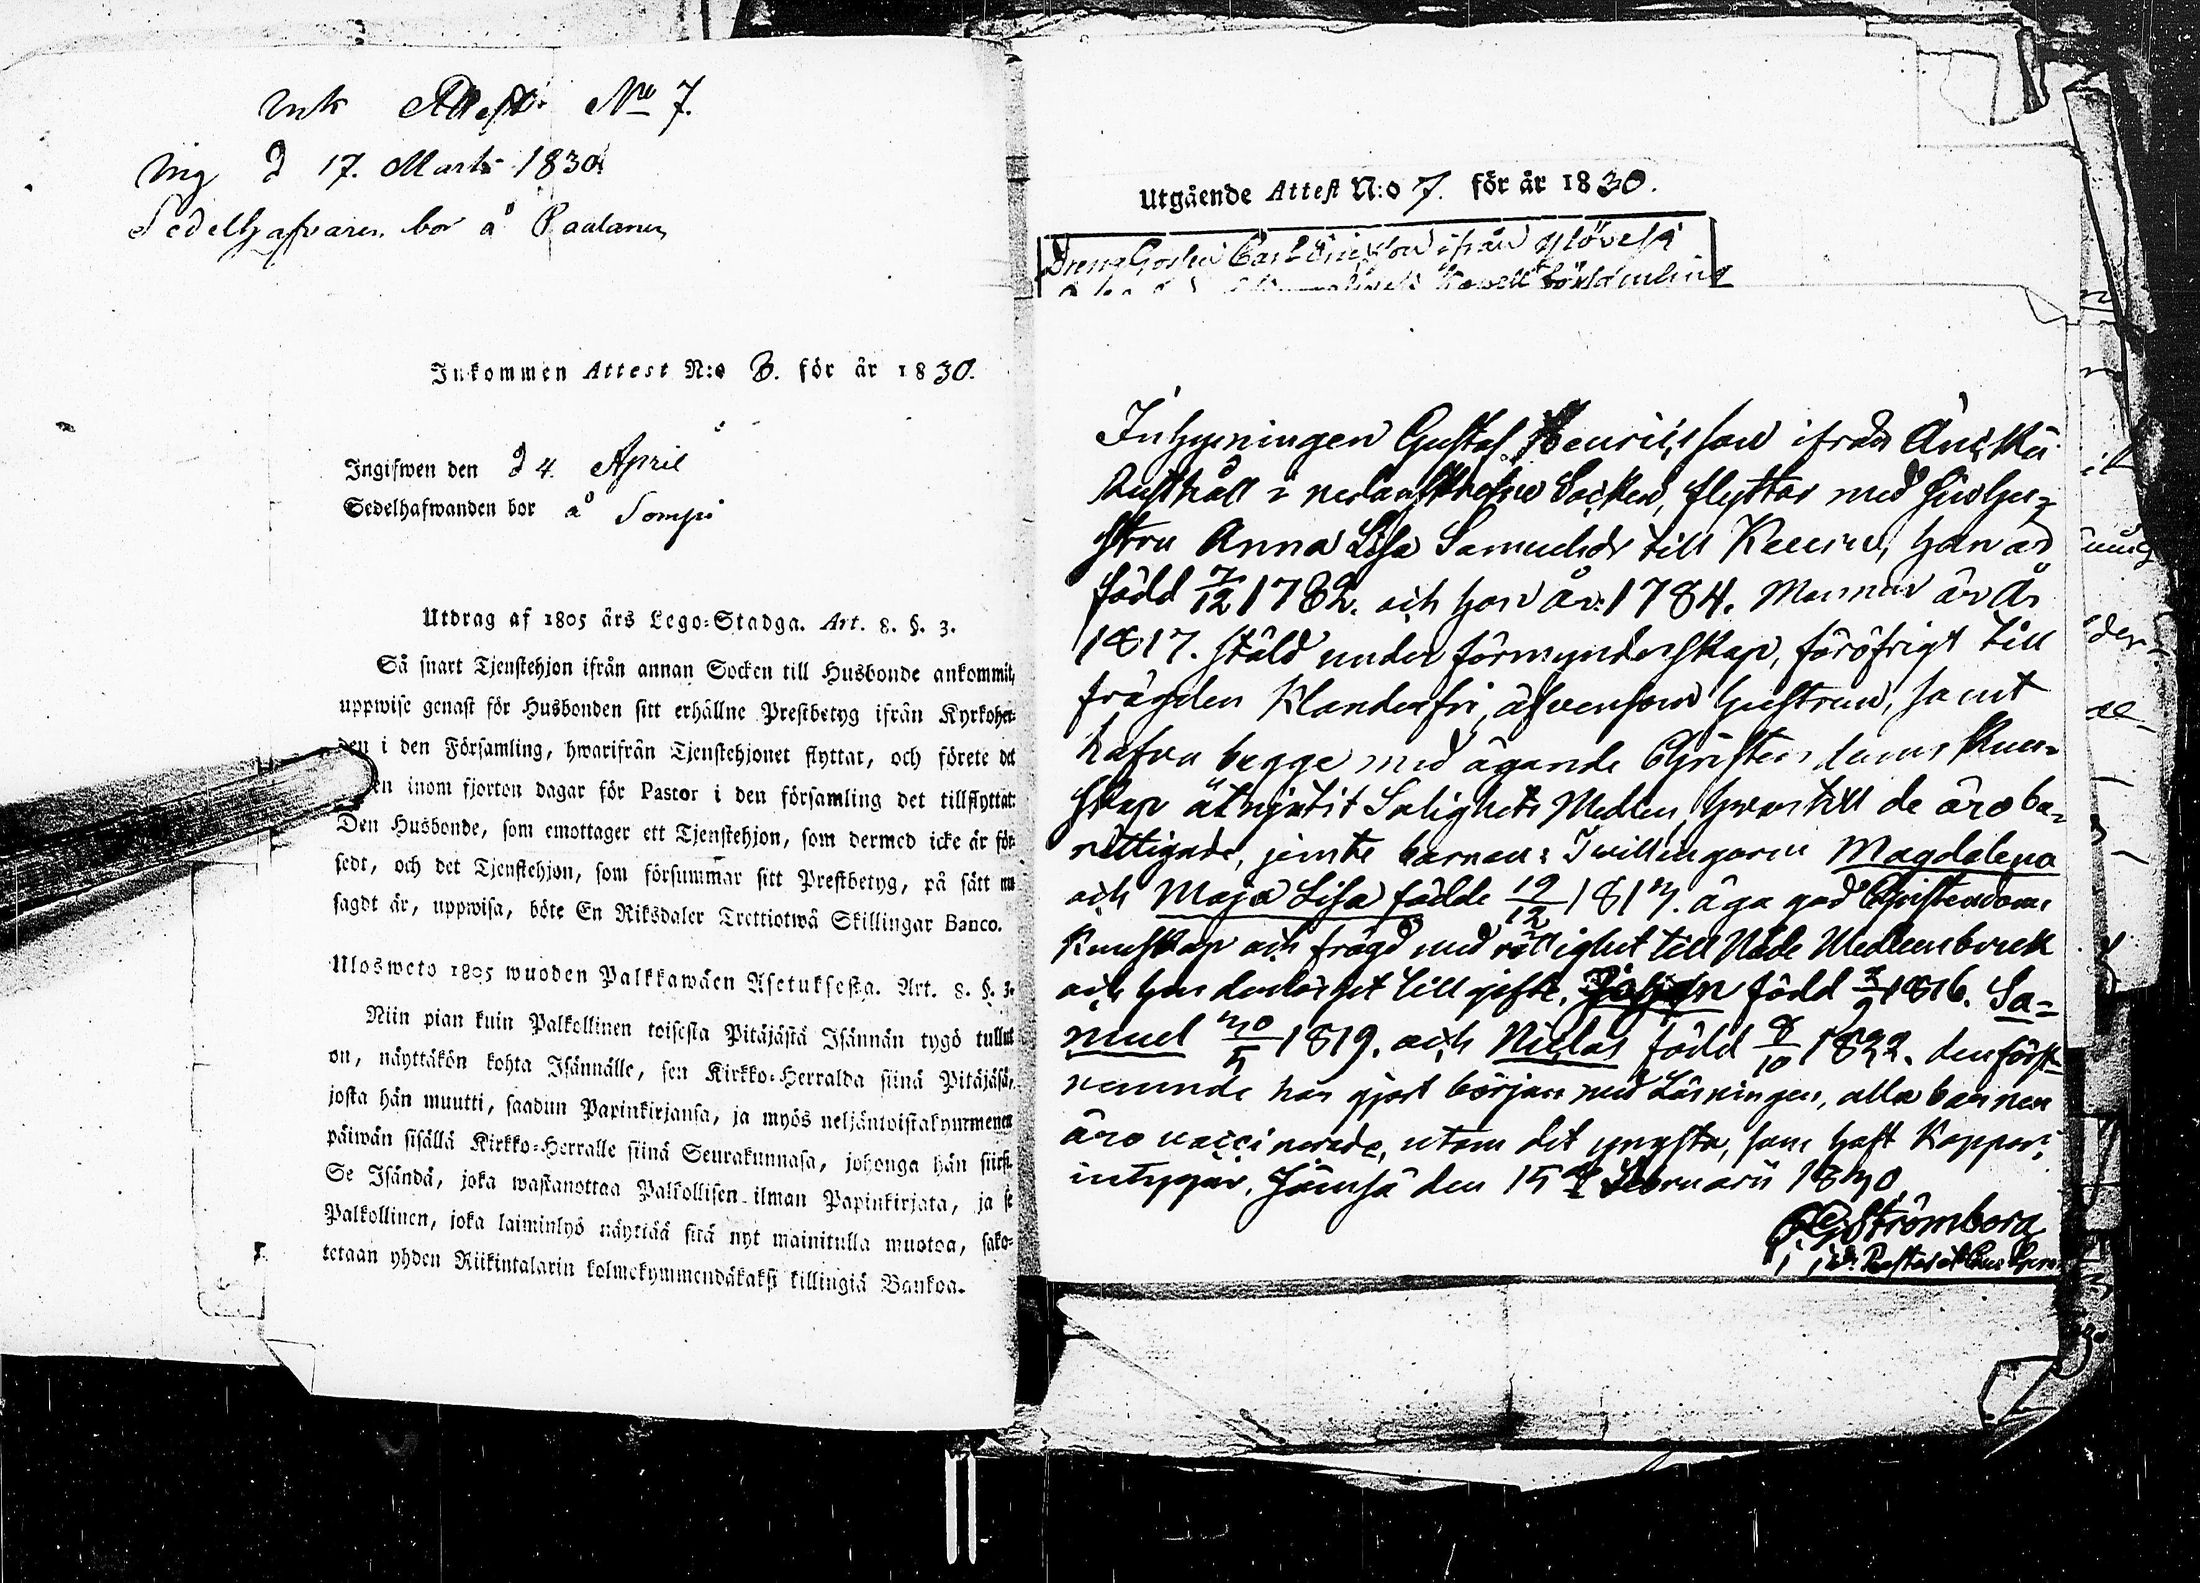 Ink Attest No 7.
Ing d 17. Marti 1830
Sedelhafvaren bor å Paalanen
Inkommen Attest N:o 8. för år 1830.
Ingifwen den d 4. April
Sedelhafwanden bor å Sompi
Utdrag af 1805 års Lego-Stadga. Art. 8. §. 3.
Så snart Tjenstehjon ifrån annan Socken till Husbonde ankommit,
uppwise genast för Husbonden sitt erhållne Prestbetyg ifrån Kyrkoher-
den i den Församling, hwarifrån Tjenstehjonet flyttat, och förete det
en inom fjorton dagar för Pastor i den församling det tillflyttat.
Den Husbonde, som emottager ett Tjenstehjon, som dermed icke är för-
sedt, och det Tjenstehjon, som försummar sitt Prestbetyg, på sätt nu
sagdt är, uppwisa, böte En Riksdaler Trettiotwå Skillingar Banco.
Ulosweto 1805 wuoden Palkkawäen Asetuksesta. Art. 8. §. 3.
Niin pian kuin Palkollinen toisesta Pitäjästä Isännän tygö tullut
on, näyttäkön kohta Isännälle, sen Kirkko-Herralda siinä Pitäjäsä,
josta hän muutti, saadun Papinkirjansa, ja myös neljäntoistakymmenen
päiwän sisällä Kirkko-Herralle siinä Seurakunnasa, johonga hän siirsi.
Se Isändä, joka wastanottaa Palkollisen ilman Papinkirjata, ja se
Palkollinen, joka laiminlyö näyttää sitä nyt mainitulla muotoa, sako-
tetaan yhden Riikintalarin kolmekymmendäkaksi killingiä Bankoa.
Utgående Attest N:o 7. för år 1830.
Dreng Gossen Carl Ericsson ifrån
Inhysningen Gustaf Henricsson ifrån
Rusthåll i nedanskrefne Socken, flyttar med sin hu-
stru Anna Lisa Samuelsdr till Keuru, han är
född 7/12 1782. och hon år 1784. Mannen är År
1817. stäld under förmynderskap, föröfrigt till
frägden klanderfri, äfvensom hustrun, samt
hafva begge med ägande Christendoms kun-
skap åtnjutit Salighets Medlen, hvartill de äro be-
rättigade, jemte barnen: Tvillingarne Magdalena
och Maja Lisa födde 19/12 1813. äga god Christendoms
kunskap och frägd med rättighet till Nåde Medlens bruk
och hinderlöshet till gifte, Johan född 3/9 1816. Sa-
muel 30/5 1819. och Niclas född 9/10 1822. den först-
nemnde har gjort början med Läsningen, alla barnen
äro vaccinerade, utom det yngsta, som haft Koppor,
intygar. Jämsä den 15de Februarii 1830
Strömborg